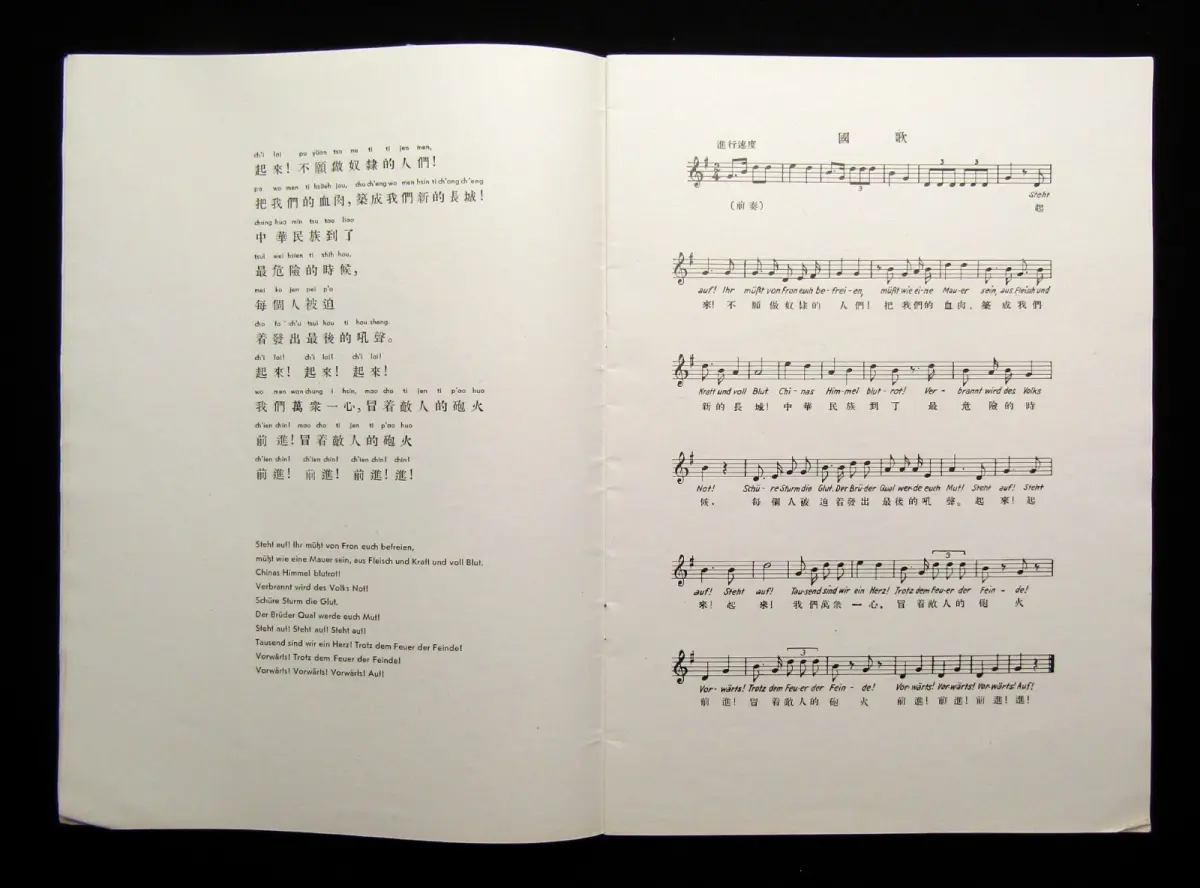 ch'i lai pu yüan tso nu li ti jen men,
起來！不願做奴隸的人們！
pa wo men ti hsüeh jou, cho ch'eng wo men hsin ti ch'ang ch'eng
把我們的血肉，築成我們新的長城！
chung hua min tsu tao liao
中華民族到了
tsui wei hsien ti shih hou,
最危險的時候，
mei ko jen pei p'o
每個人被迫
cho fa ch'u tsui hou ti hou sheng.
着發出最後的吼聲。
ch'i lai! ch'i lai! ch'i lai!
起來！起來！起來！
wo men wan chung i hsin, mao cho ti jen ti p'ao huo
我們萬衆一心，冒着敵人的砲火
ch'ien chin! mao cho ti jen ti p'ao huo
前進！冒着敵人的砲火
ch'ien chin! ch'ien chin! ch'ien chin! chin!
前進！前進！前進！進！
Steht auf! Ihr müßt von Fron euch befreien,
müßt wie eine Mauer sein, aus Fleisch und Kraft und voll Blut.
Chinas Himmel blutrot!
Verbrannt wird des Volks Not!
Schüre Sturm die Glut.
Der Brüder Qual werde euch Mut!
Steht auf! Steht auf! Steht auf!
Tausend sind wir ein Herz! Trotz dem Feuer der Feinde!
Vorwärts! Trotz dem Feuer der Feinde!
Vorwärts! Vorwärts! Vorwärts! Auf!
國歌
進行速度
3 3 3
Steht
(前奏) 起
auf! Ihr müßt von Fron euch be-frei-en, müßt wie ei-ne Mau-er sein, aus Fleisch und
來！不願做奴隸的人們！把我們的血肉，築成我們
Kraft und voll Blut Chi-nas Him-mel blut-rot! Ver-brannt wird des Volks
新的長城！中華民族到了最危險的時
Not! Schü-re Sturm die Glut. Der Brü-der Qual wer-de euch Mut! Steht auf! Steht
候，每個人被迫着發出最後的吼聲。起來！起
3
auf! Steht auf! Tau-send sind wir ein Herz! Trotz dem Feu-er der Fein-de!
來！起來！我們萬衆一心，冒着敵人的砲火
3
Vor-wärts! Trotz dem Feu-er der Fein-de! Vor-wärts! Vor-wärts! Vor-wärts! Auf!
前進！冒着敵人的砲火前進！前進！前進！進！